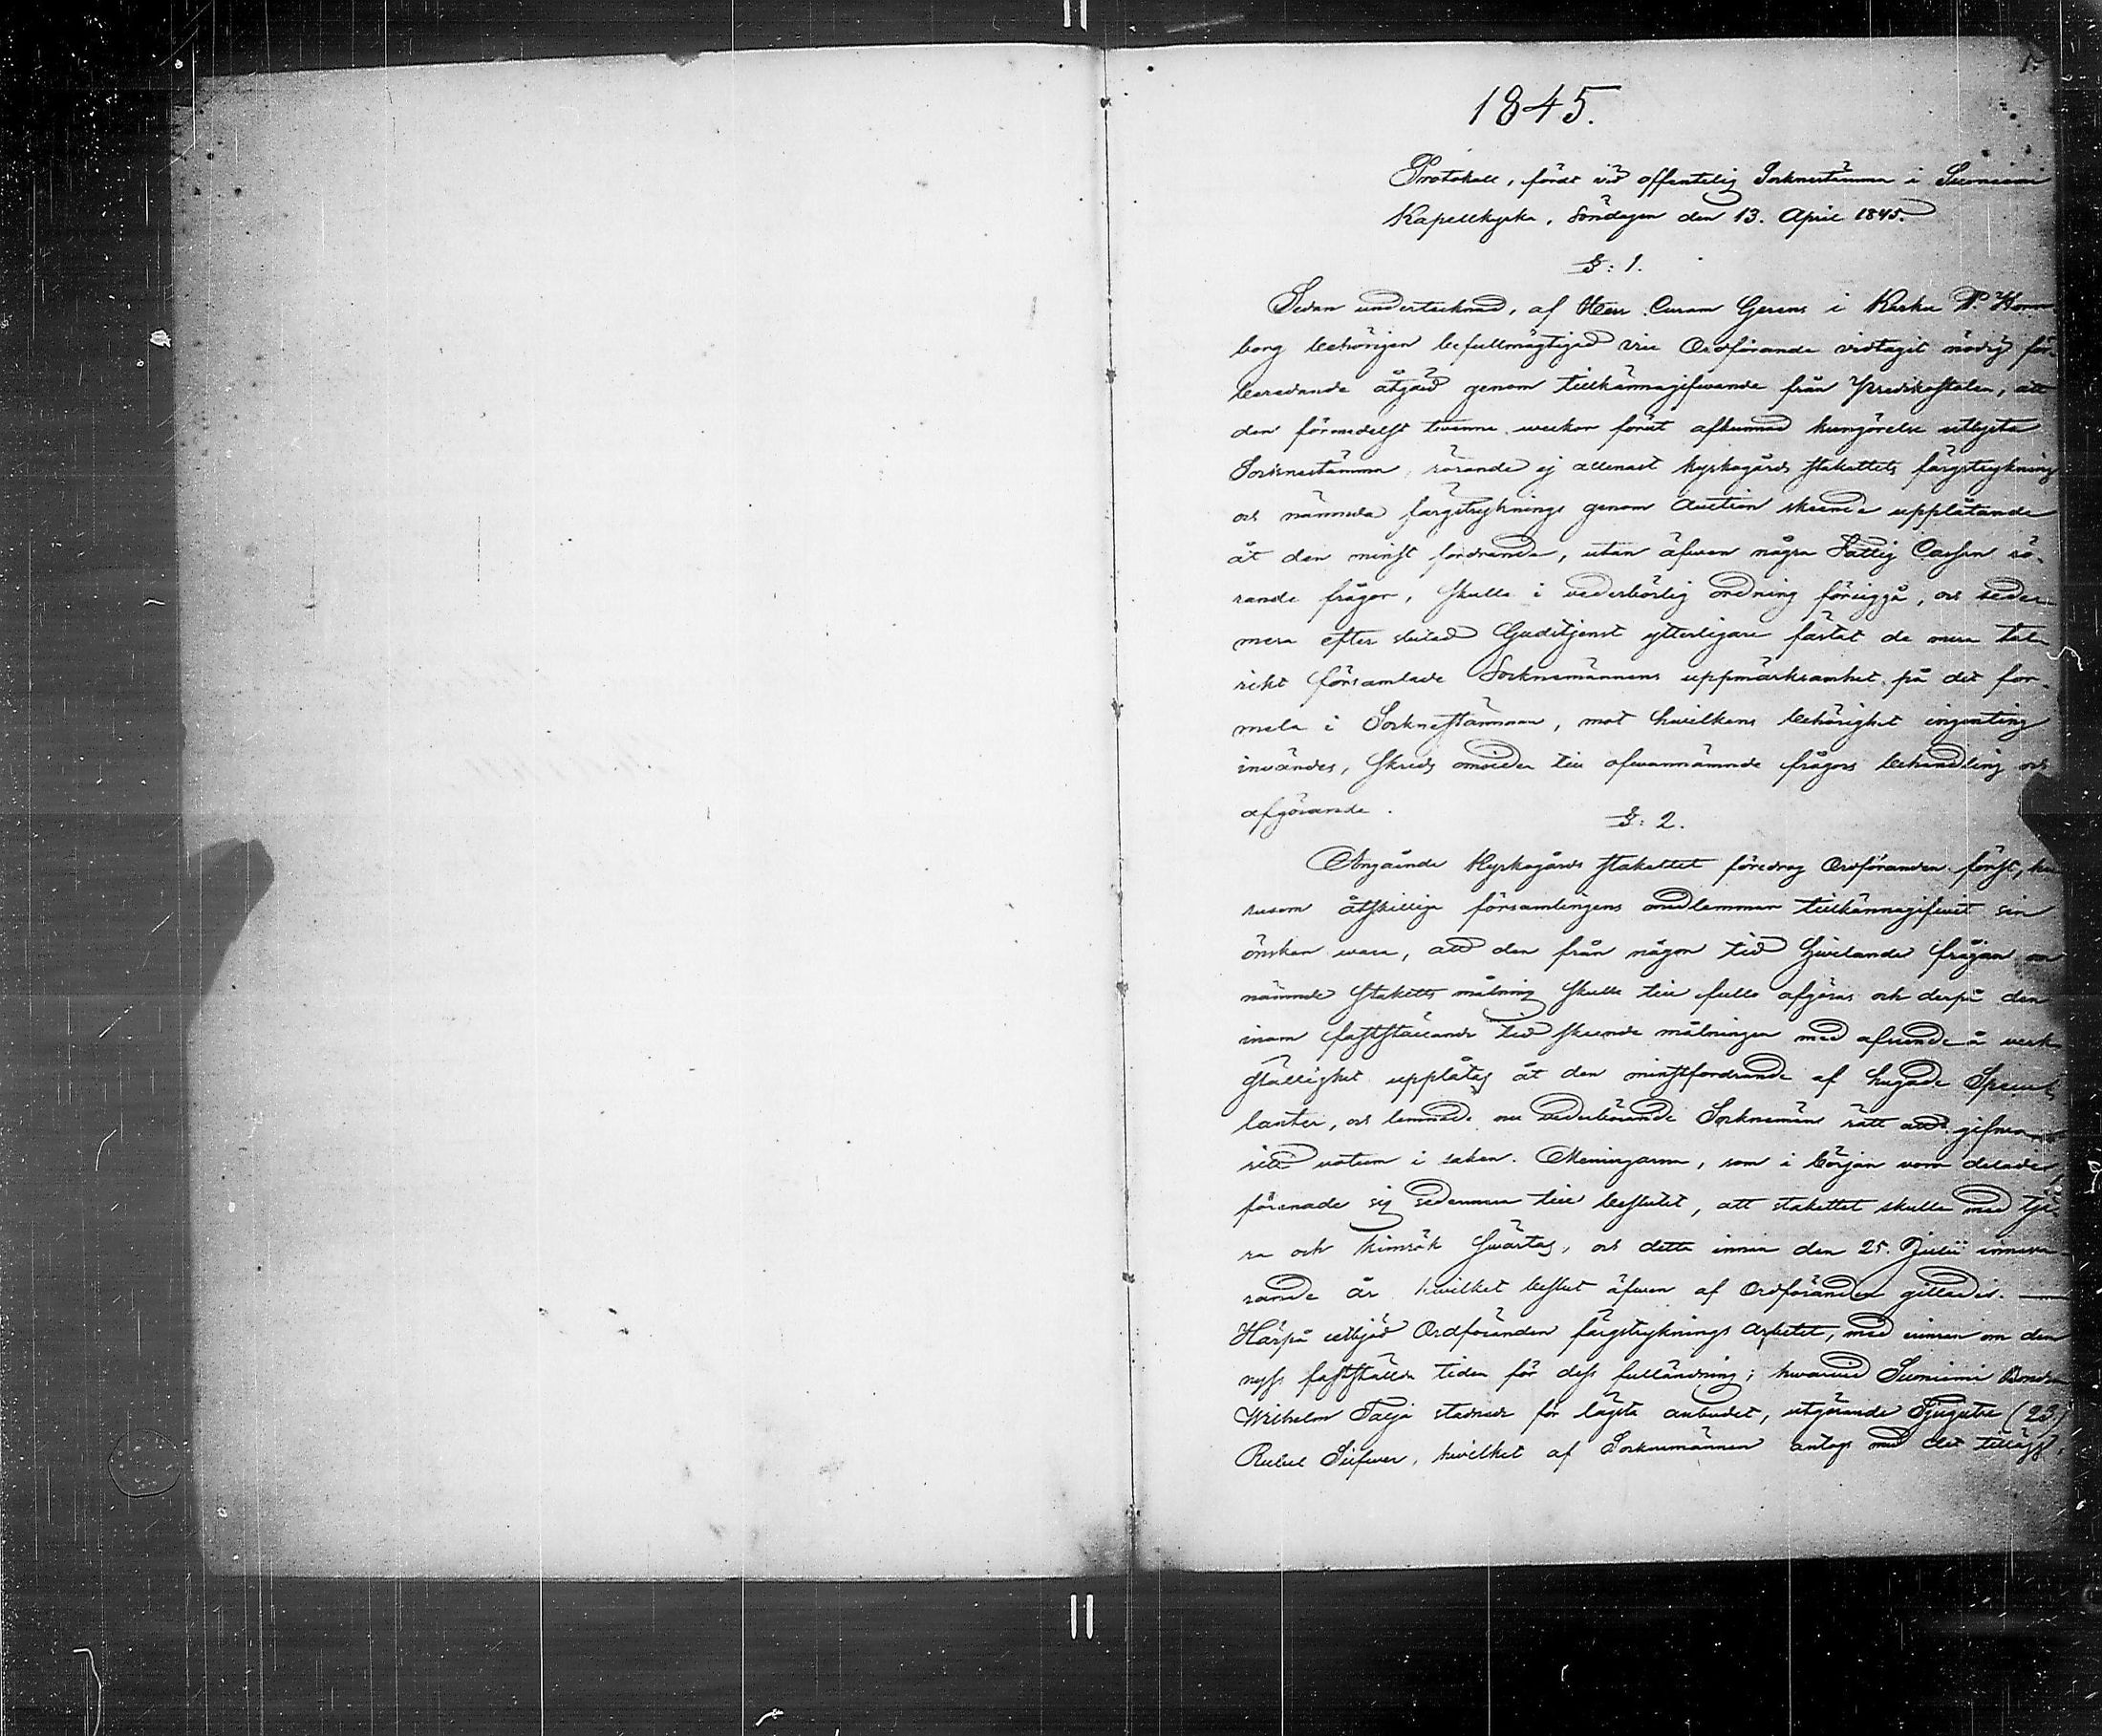 1.
1845.
Protokoll, fördt vid offentelig Socknestämma i Suoniemi
Kapellkyrka, Söndagen den 13. April 1845.
§: 1.
Sedan undertecknad, af Herr Curam Gerens i Karku P. Horn
borg behörigen befullmägtigad till Ordförande vidtagit nödig för-
beredande åtgärd genom tillkännagifvande från Predikostolen, att
den förmedelst tvenne veckor förut afkunnad kungörelse utlysta
Socknestämma, rörande ej allenast kyrkogårds stakettets färgstrykning
och nämnda färgstryknings genom Auction skeende upplåtande
åt den minst fordrande, utan äfven några Fattig Cassan rö-
rande frågor, skulle i vederbörlig ordning föregå, och seder-
mera efter slutad Gudstjenst ytterligare fästat de mera tal-
rikt församlade Socknemännens uppmärksamhet på det for-
mela i Socknestämman, mot hvilkens behörighet ingenting
invändes, skreds omsider till ofvannämnde frågors behandling och
afgörande.
§: 2.
Angående Kyrkogårds stakettet föredrog Ordföranden först, hu-
rusom åtskillige församlingens medlemmar tillkännagifvit sin
önskan vara, att den från någon tid hvilande frågan om
nämnde stakets målning skulle till fullo afgöras och derpå den
inom fastställande tid skeende målningen med afseende å verk-
ställighet upplåtas åt den minstfordrande af hugade Specu-
lanter, och lemnade nu vederbörande Socknemän rätt att gifva
sitt votum i saken. Meningarna, som i början voro delade,
förenade sig sedermera till beslutet, att stakettet skulle med tjä-
ra och kimrök svärtas, och detta innan den 25. Julii innева-
rande år hvilket beslut äfven af Ordföranden gillades. —
Härpå utbjöd Ordföranden färgstryknings arbetet, med erinran om den
nyss fastställda tiden för dess fulländning; hvarvid Suoniemi Bonden
Wilhelm Saija stadnade för lägsta anbudet, utgörande Tjugutre (23)
Rubel Silfver, hvilket af Socknemännen antogs med det tillägg,